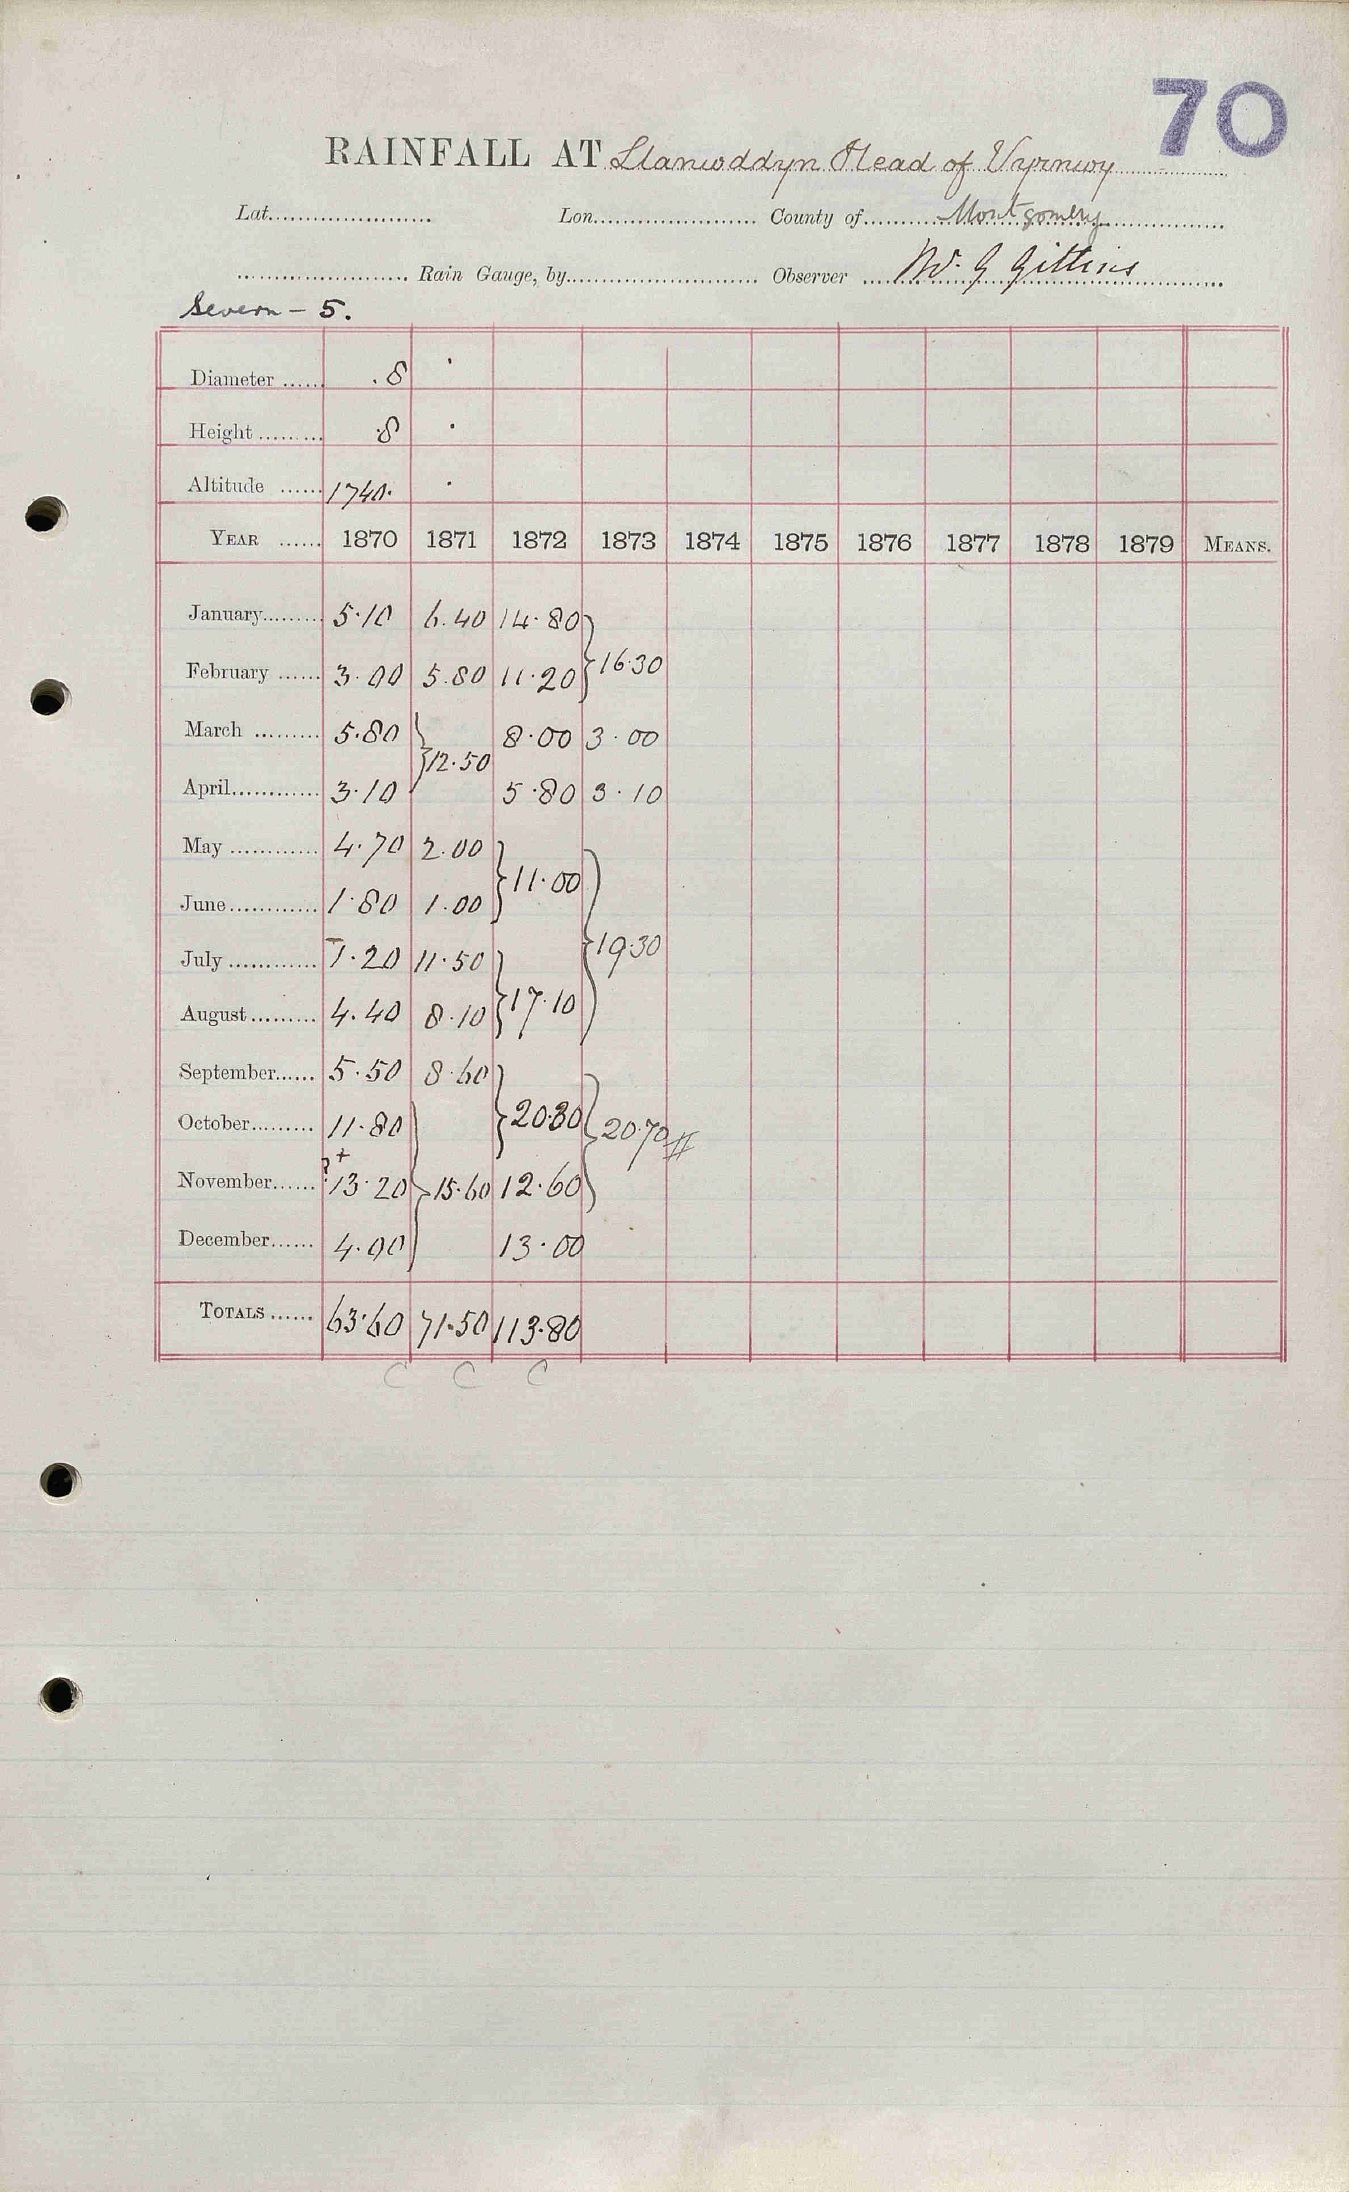 70
RAINFALL AT Llanwddyn Head of Vyrnwy
Lat. Lon. County of Montgomery
Rain Gauge, by Observer W. G Gittins
Severn - 5.
Diameter .8
Height .8
Altitude 1740.
YEAR 1870 1871 1872 1873 1874 1875 1876 1877 1878 1879 MEANS.
January 5.10 6.40 14.80
February 3.00 5.80 11.20 } 16.30
March 5.80 8.00 3.00
} 12.50
April 3.10 5.80 3.10
May 4.70 2.00
} 11.00
June 1.80 1.00
July 1.20 11.50 } 19.30
August 4.40 8.10 } 17.10
September 5.50 8.60
October 11.80 } 20.30 } 20.70 //
November ? + 13.20 } 15.60 12.60
December 4.00 13.00
TOTALS 63.60 71.50 113.80
C C C